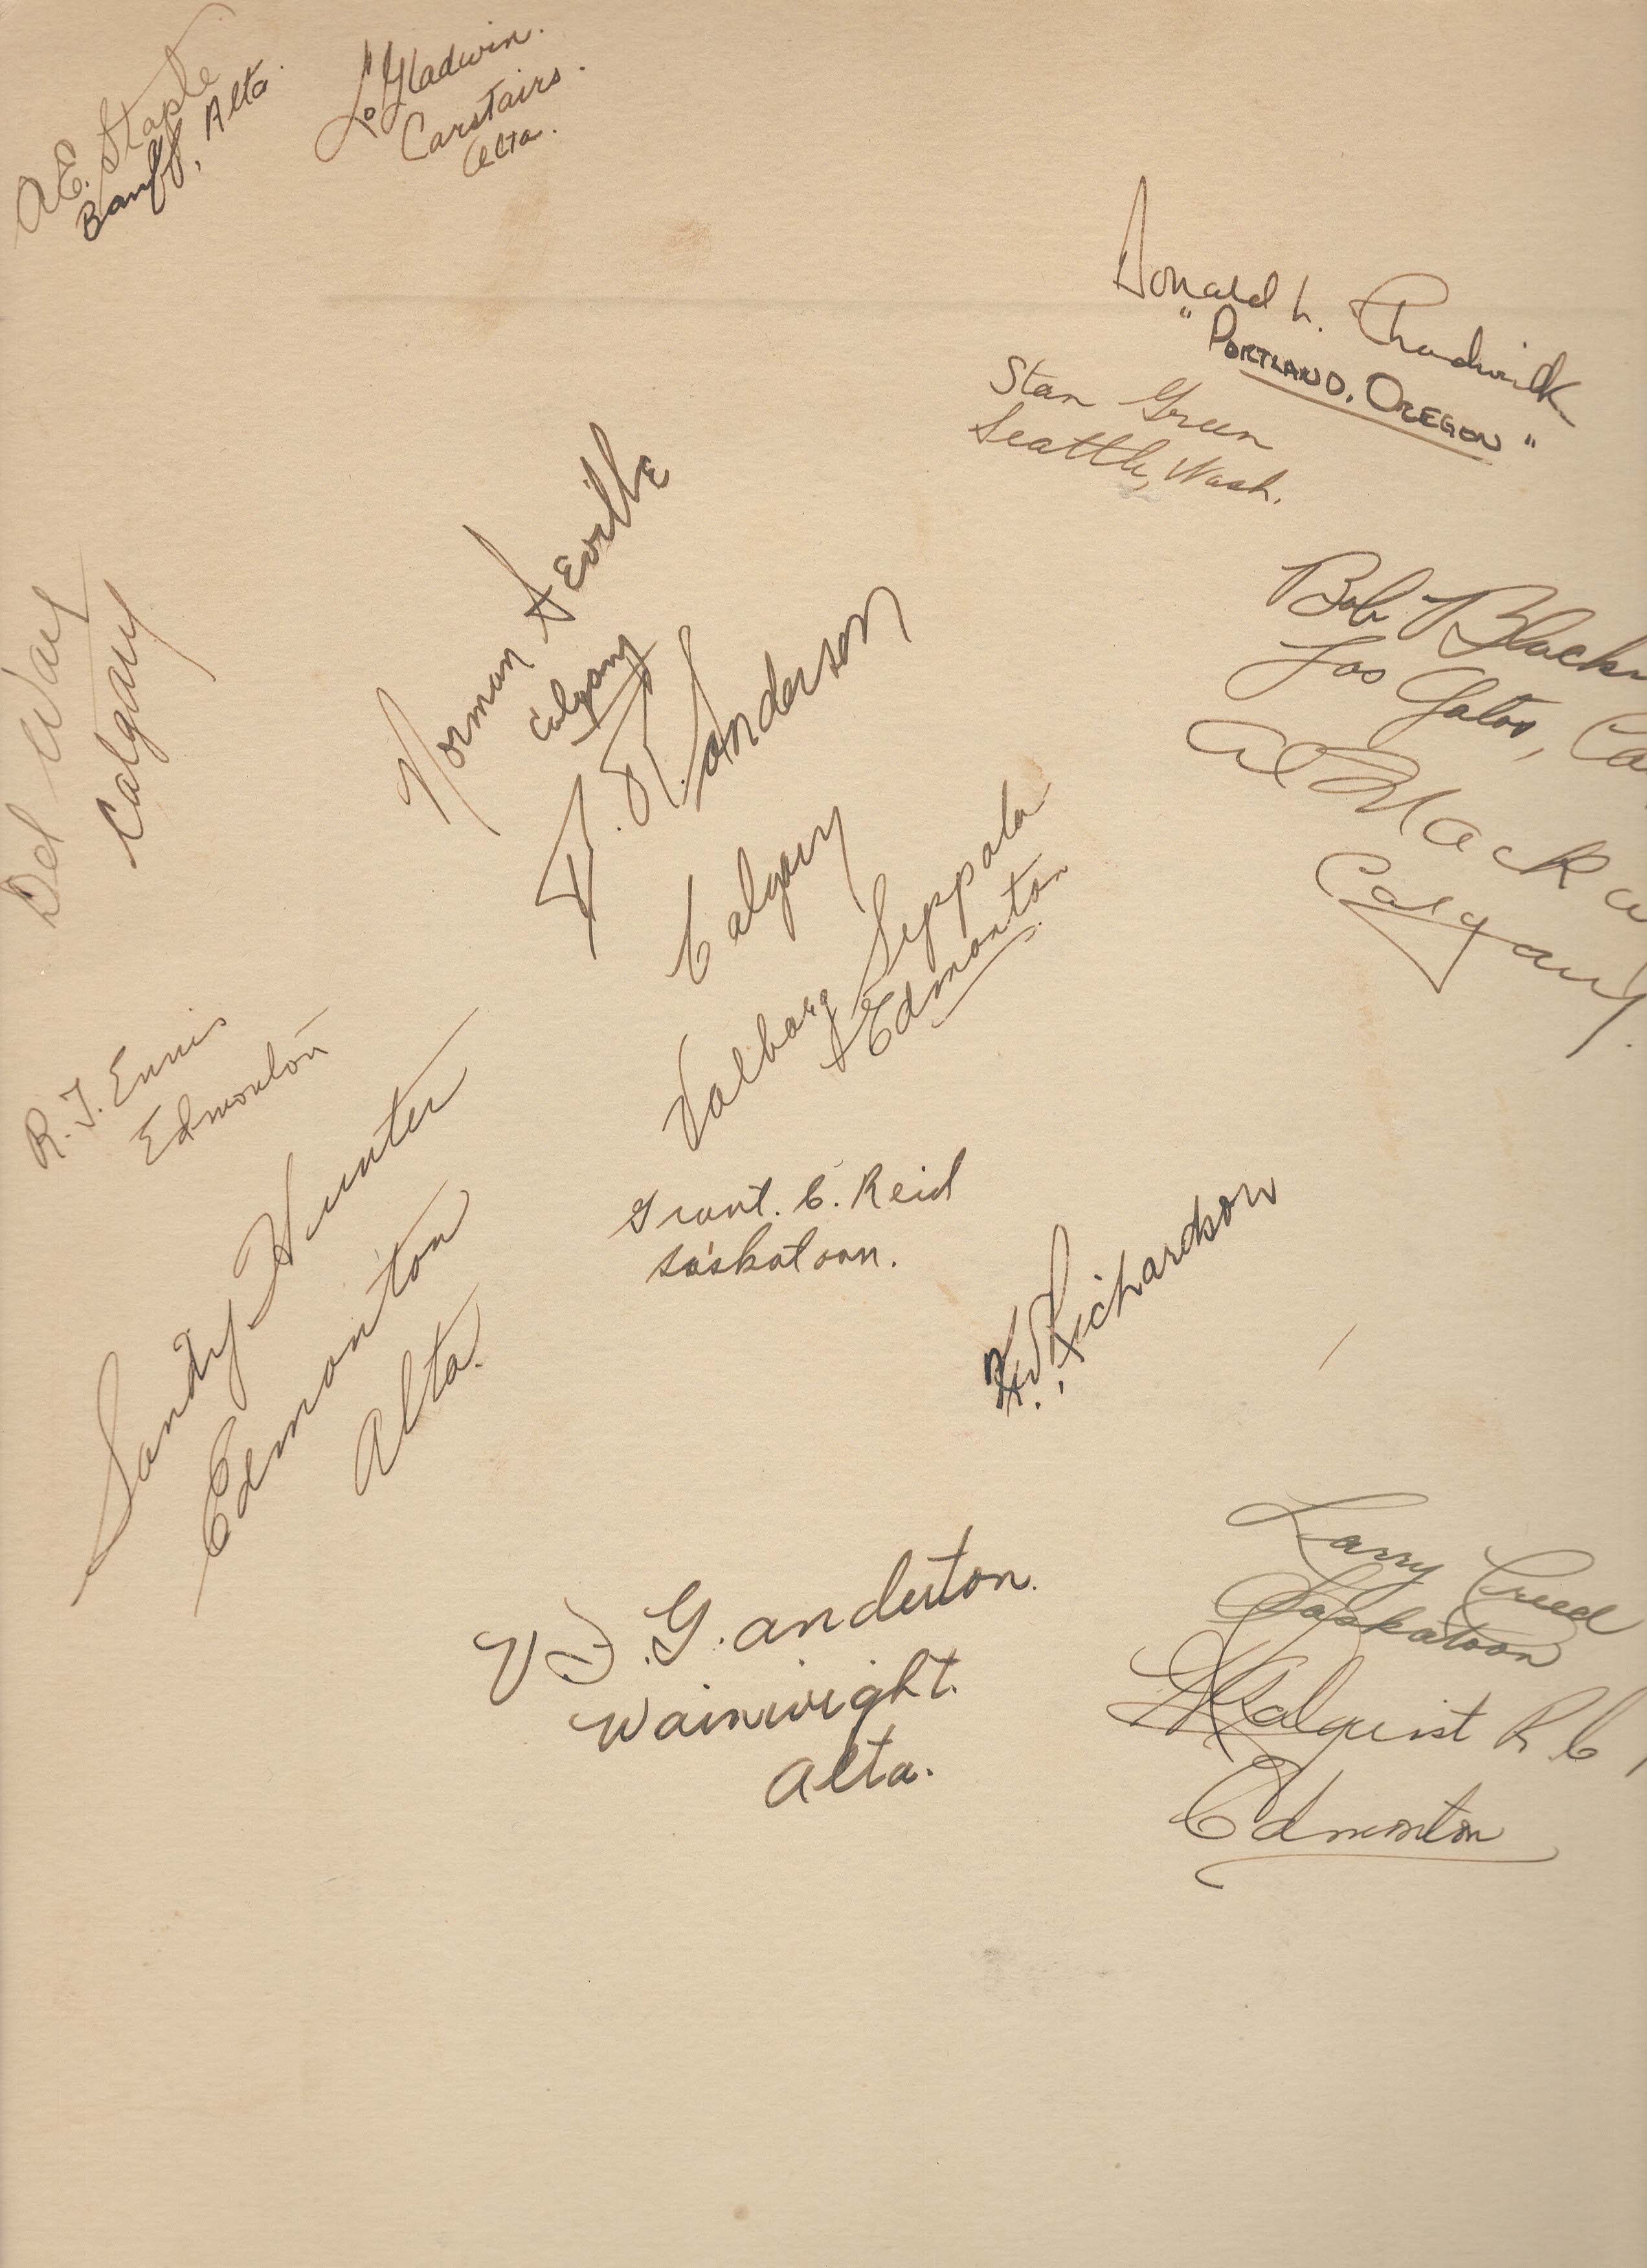 A.E. Staple
Banff, Alta.
L. Gladwin.
Carstairs.
Alta.
Donald L. Chadwick
"PORTLAND, OREGON"
Stan Green
Seattle, Wash.
Norman Seville
Calgary
Bob
Los Gatos,
Del Way
Calgary
Calgary
Al
Calgary.
Valborg Seppala
Edmonton
R. J. Ennis
Edmonton
Sandy Hunter
Edmonton
Alta.
Grant. C. Reid
Saskatoon.
Richardson
Larry Creed
Saskatoon
G. Anderton.
Wainwright.
Alta.
Edmonton